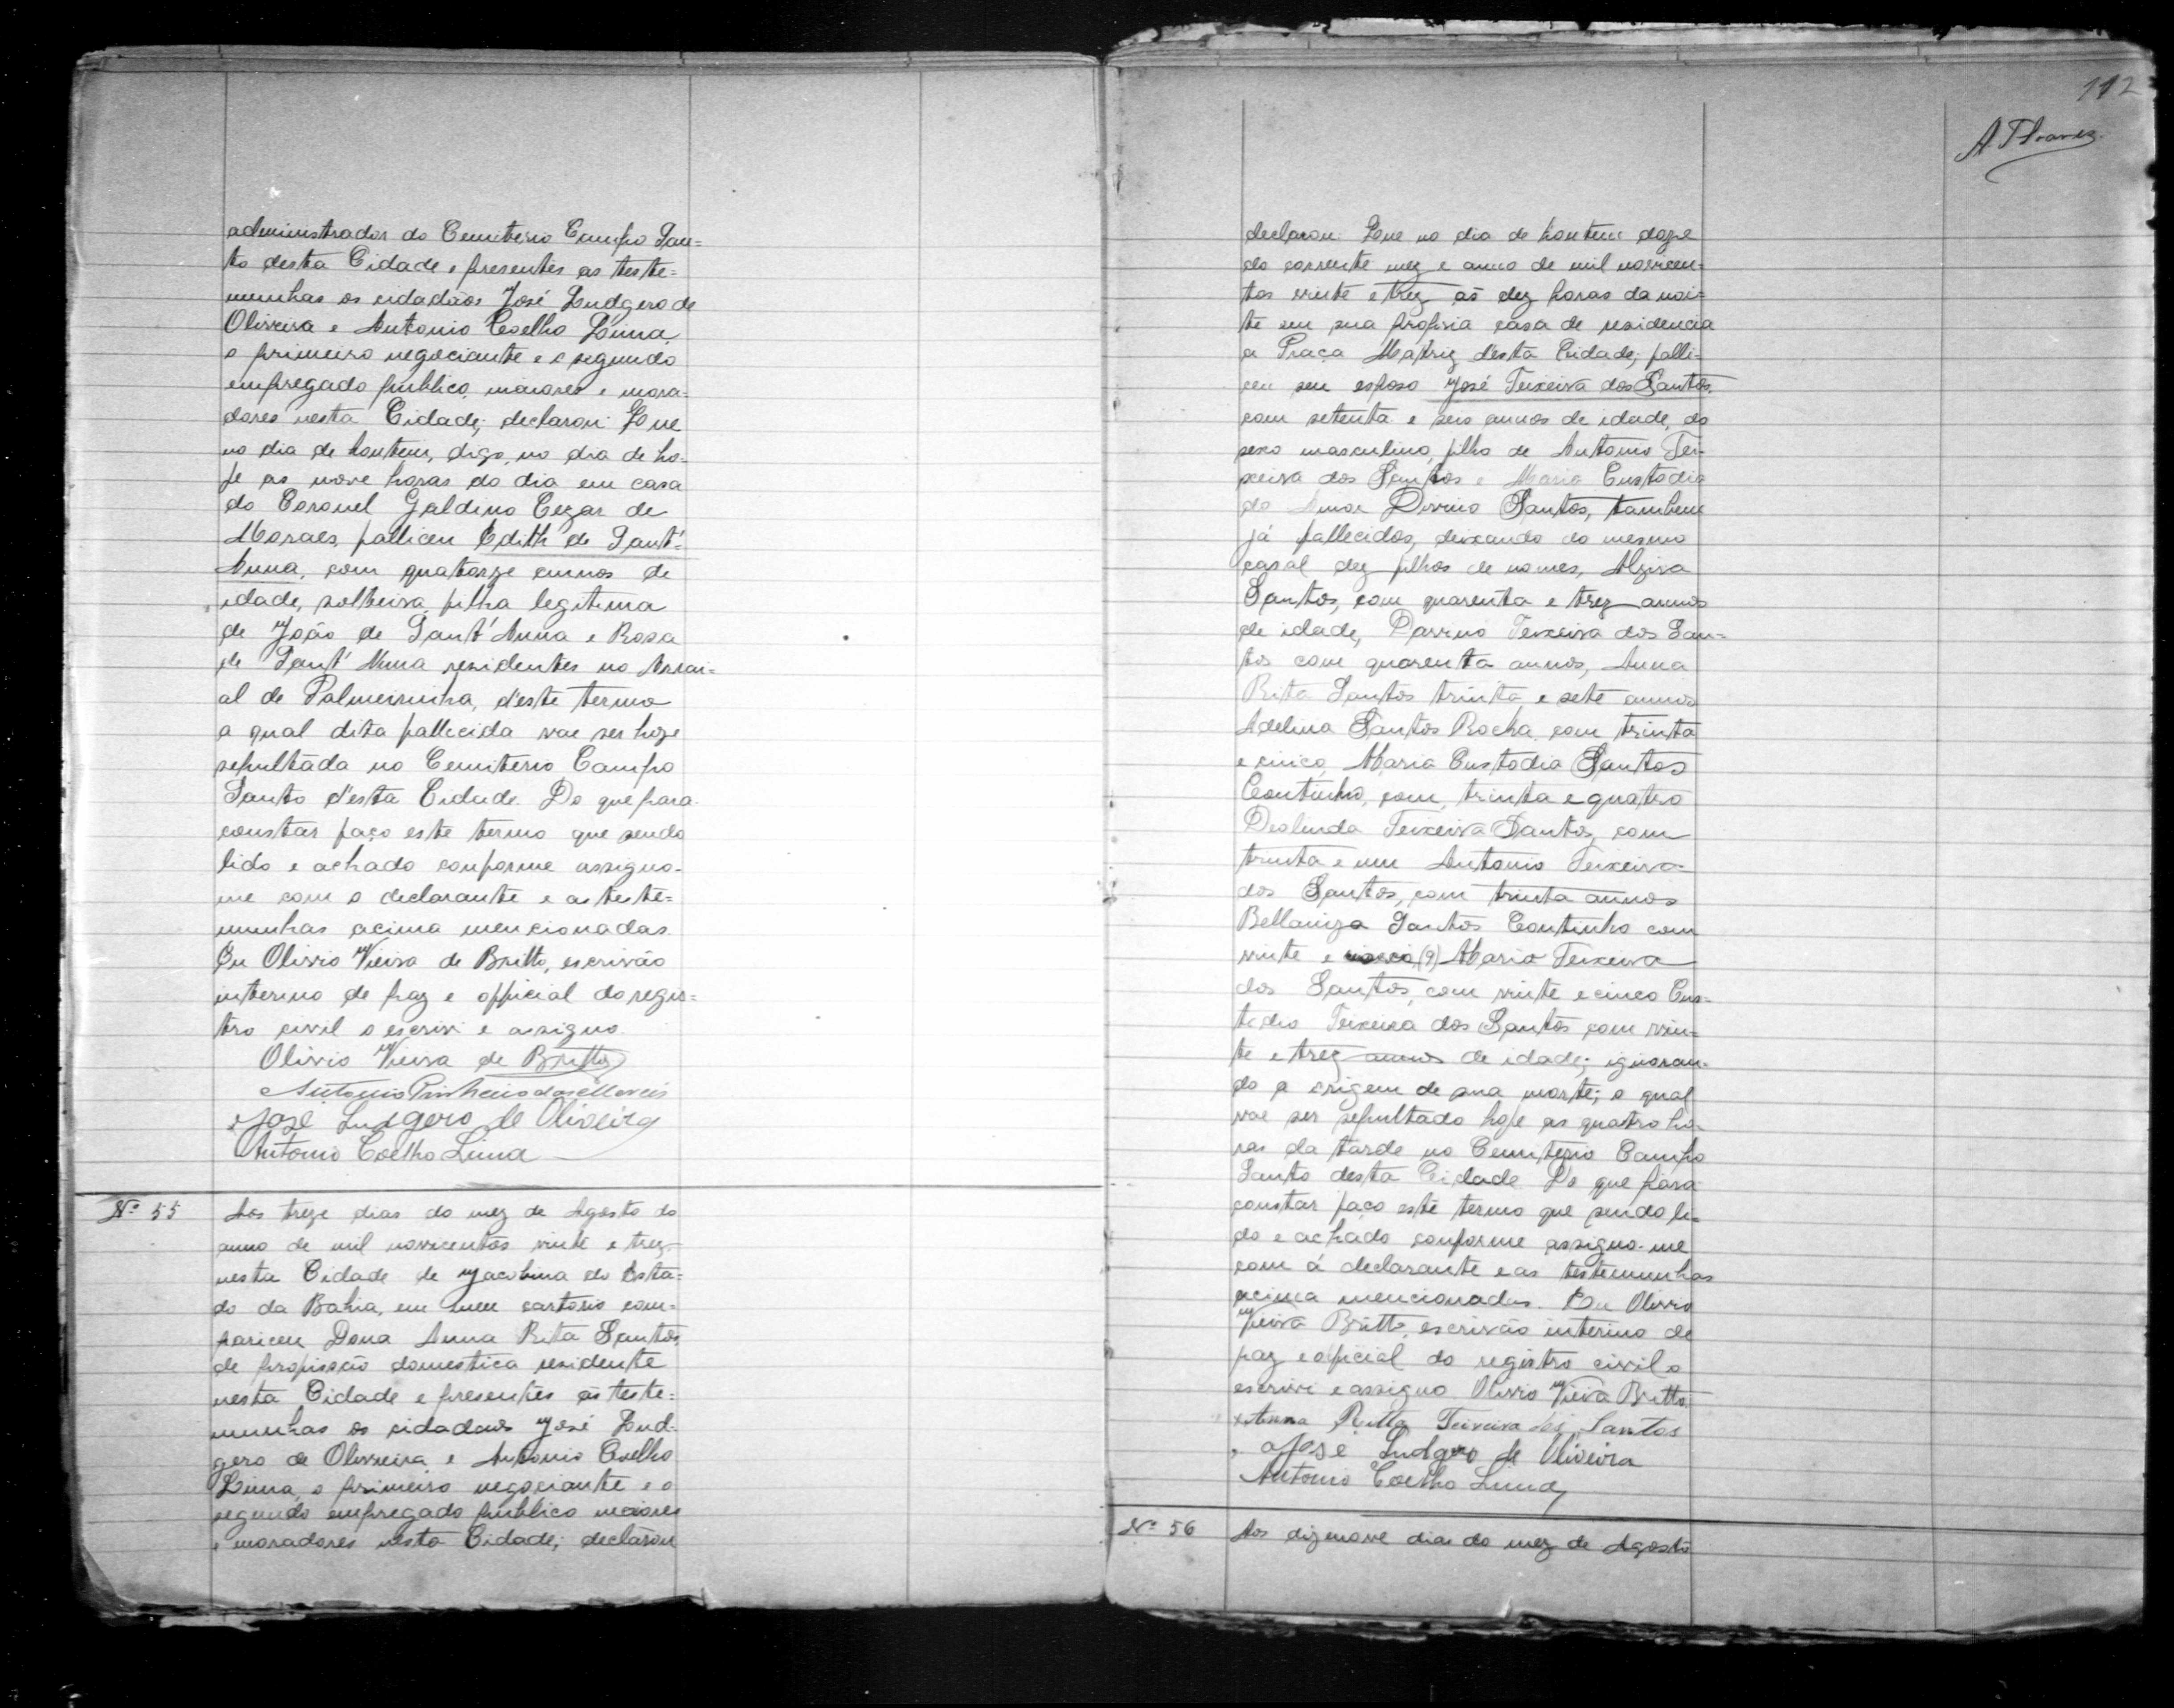 administrador do Cemiterio Campo San=
to desta Cidade e presentes as teste=
munhas os cidadãos José Ludgero de
Oliveira e Antonio Coelho Lima,
o primeiro negociante e o segundo
empregado publico, maiores e mora-
dores nesta Cidade; declarou: Que
no dia de hontem, digo, no dia de ho-
je as nove horas do dia em casa
do Coronel Galdino Cezar de
Moraes, falliceu Edith de Sant'-
Anna, com quatorze annos de
idade, solteira, filha legitima
de João de Sant'Anna e Rosa
de Sant'Anna residentes no Arrai=
al de Palmeirinha, d'este termo
a qual dita fallecida vae ser hoje
sepultada no Cemiterio Campo
Santo d'esta Cidade. Do que para
constar faço este termo que sendo
lido e achado conforme assigno-
me com o declarante e as teste=
munhas acima mencionadas.
Eu Olivio Vieira de Britto, escrivão
interino de paz e official do regis=
tro civil o escrivi e assigno
Olivio Vieira de Britto
Antonio Pinheiro das
José Ludgero de Oliveira
Antonio Coelho Lima
Nº 55 Aos treze dias do mez de Agosto do
anno de mil novicentos vinte e trez,
nesta Cidade de Jacobina do Esta=
do da Bahia, em meu cartorio com=
pariceu Dona Anna Rita Santos,
de profissão domestica residente
nesta Cidade e presentes as teste=
munhas os cidadãos José Lud-
gero de Oliveira e Antonio Coelho
Lima, o primeiro negociante e o
segundo empregado publico maiores
e moradores nesta Cidade; declarou
112
declarou: Que no dia de hontem doze
do corrente mez e anno de mil novicen=
tos vinte e trez as dez horas da noi=
te em sua propria casa de residencia
a Praça Matriz desta Cidade; falli-
ceu seu esposo José Teixeira dos Santos,
com setenta e seis annos de idade, do
sexo masculino, filho de Antonio Tei-
xeira dos Santos e Maria Custodia
do Divino Santos, tambem
já fallecidos, deixando do mesmo
casal dez filhos de nomes, Alzira
Santos, com quarenta e trez annos
de idade, Teixeira dos San=
tos com quarenta annos, Anna
Rita Santos trinta e sete annos
Adelina Santos Rocha com trinta
e cinco, Maria Custodia Santos
Coutinho, com, trinta e quatro
Deolinda Teixeira Santos, com
trinta e um Antonio Teixeira
dos Santos, com trinta annos
Bellaniza Santos Coutinho com
vinte e (9) Maria Teixeira
dos Santos, com vinte e cinco Cus=
todio Teixeira dos Santos com vin-
te e trez annos de idade; ignoran-
do a origem de sua morte; o qual
vae ser sepultado hoje as quatro ho-
ras da tarde no Cemiterio Campo
Santo desta Cidade. Do que para
constar faço este termo que sendo li-
do e achado conforme assigno-me
com á declarante e as testemunhas
acima mencionadas. Eu Olivio
Vieira Britto, escrivão interino de
paz e official do registro civil o
escrivi e assigno Olivio Vieira Britto
Anna Ritta Teixeira dos Santos
José Ludgero de Oliveira
Antonio Coelho Lima
Nº 56 Aos dizenove dias do mez de Agosto